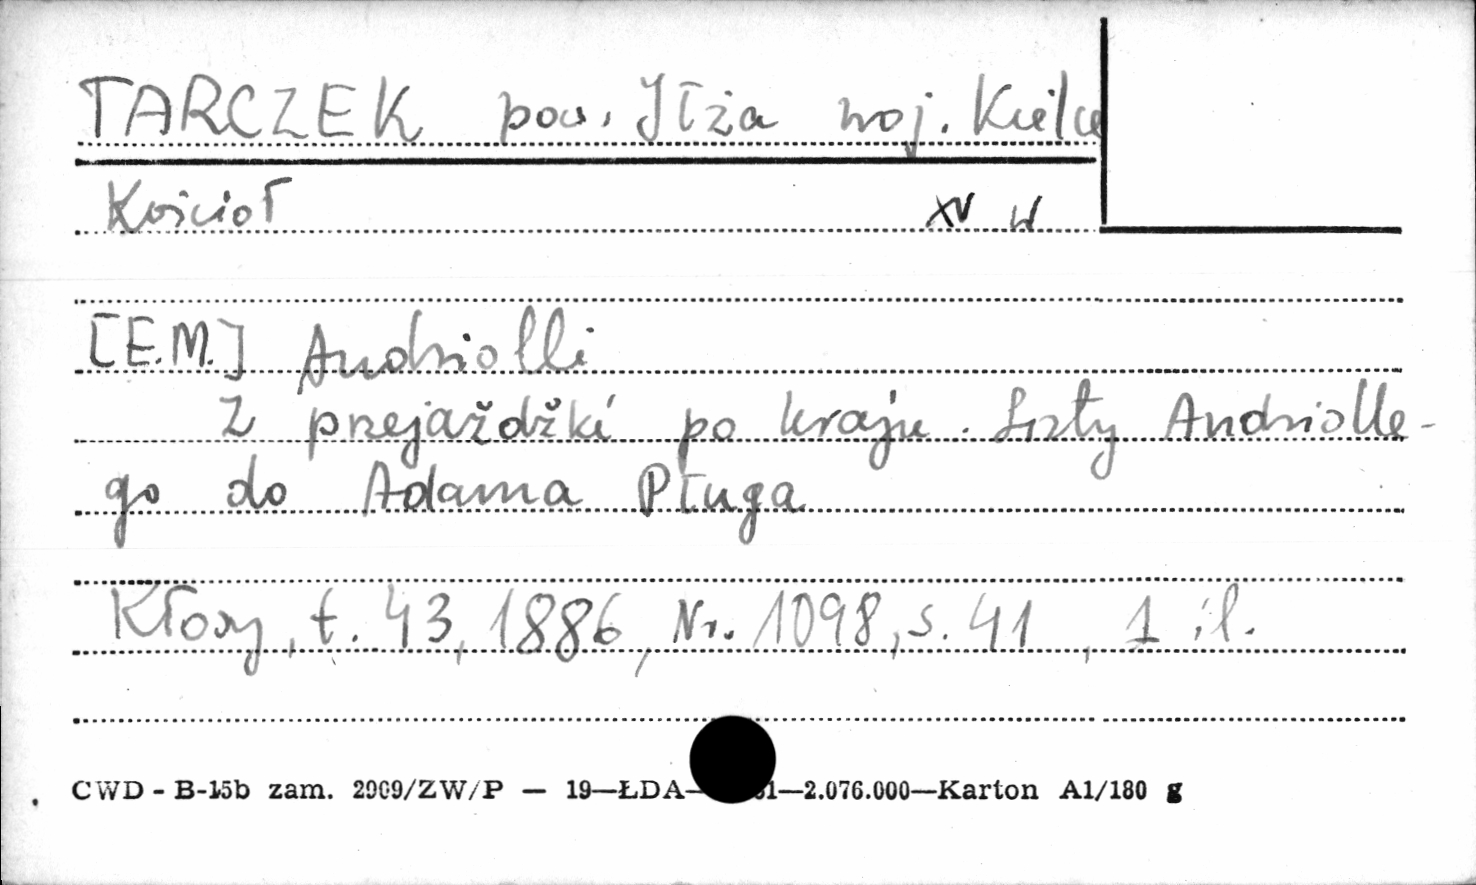 TARCZEK pow. Iłża woj. Kielce
Kościoł XV w
[E.M.] Andriolli
Z przejażdżki po kraju. Listy Andriolle-
go do Adama Pługa
Kłosy, t. 43, 1886, Nr. 1098, s. 41, 1 il.
CWD - B-15b zam. 2909/ZW/P — 19—ŁDA— 61—2.076.000—Karton A1/180 g